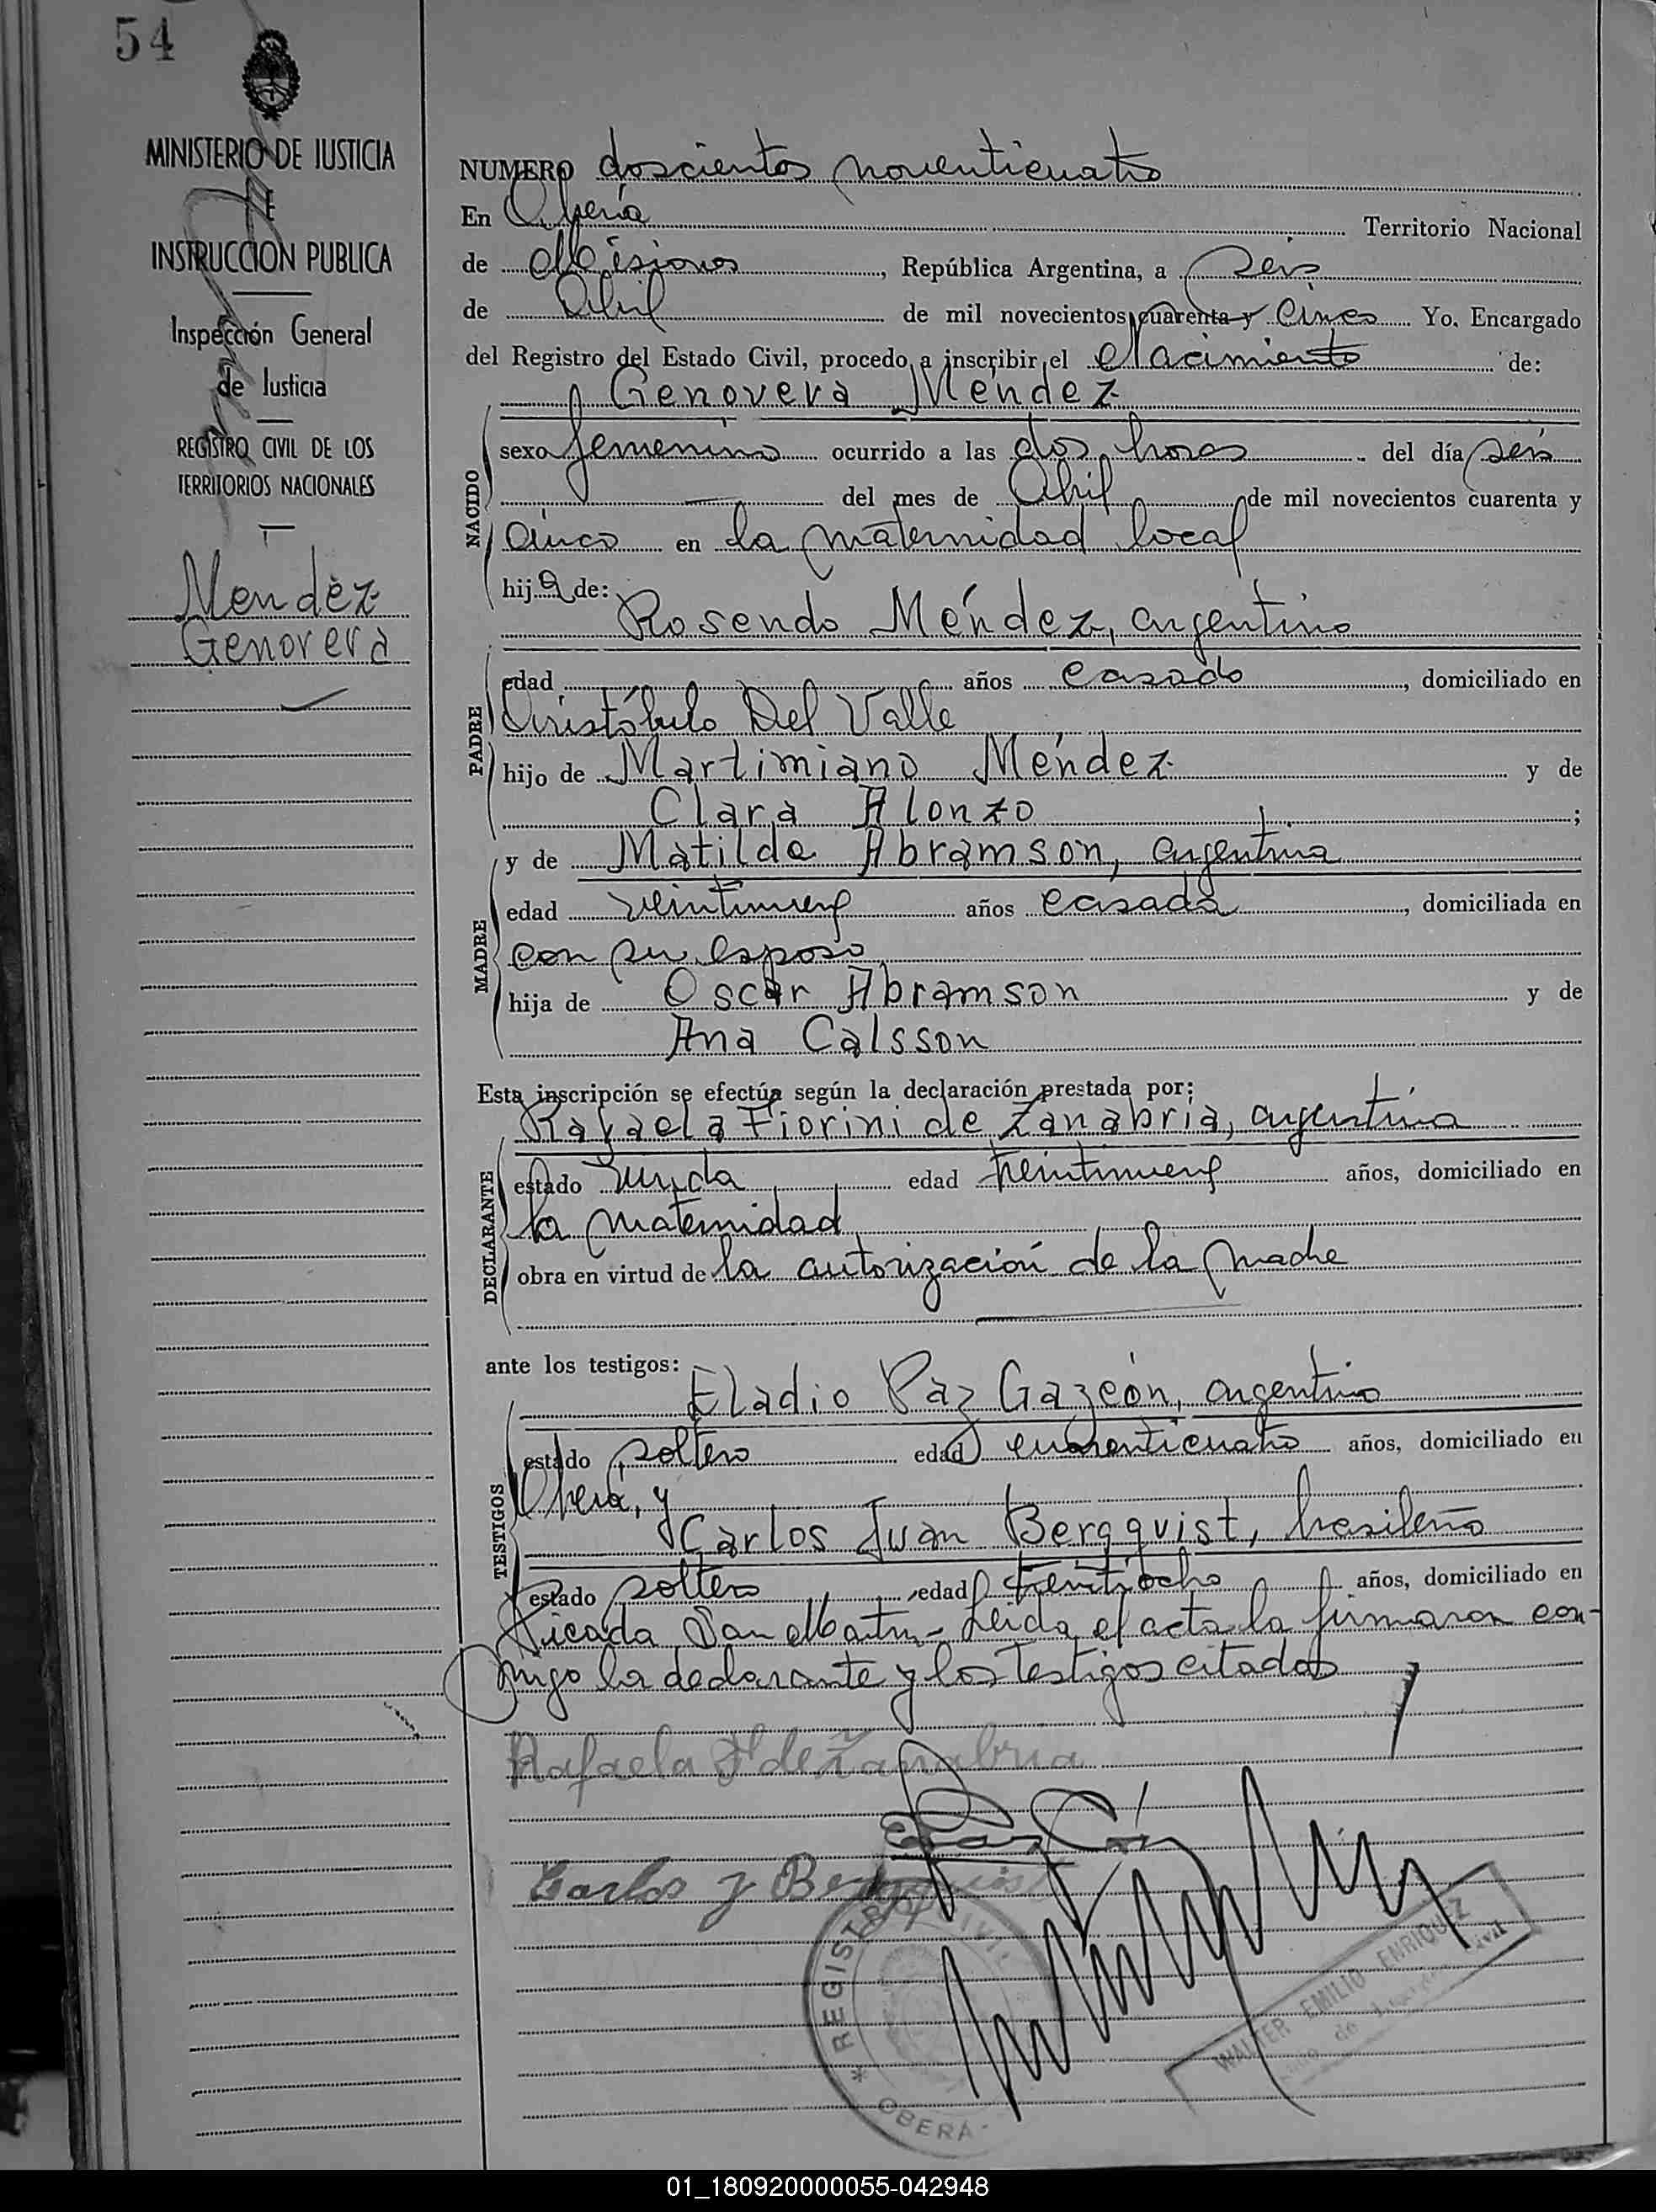 54
MINISTERIO DE JUSTICIA
E
INSTRUCCION PUBLICA
Inspección General
de Justicia
REGISTRO CIVIL DE LOS
TERRITORIOS NACIONALES
Mendez
Genovera
NUMERO doscientos noventicuatro
En Oberá Territorio Nacional
de Misiones, República Argentina, a seis
de Abril de mil novecientos cuarenta y cinco Yo, Encargado
del Registro del Estado Civil, procedo a inscribir el Nacimiento de:
Genovera Mendez
NACIDO
sexo femenino ocurrido a las dos horas del día seis
del mes de Abril de mil novecientos cuarenta y
cinco en la maternidad local
hija de:
Rosendo Méndez, argentino
PADRE
edad años casado, domiciliado en
Aristóbulo Del Valle
hijo de Martimiano Méndez y de
Clara Alonzo ;
MADRE
y de Matilde Abramson, argentina
edad veintinueve años casada, domiciliada en
con su esposo
hija de Oscar Abramson y de
Ana Calsson
Esta inscripción se efectúa según la declaración prestada por:
Rafaela Fiorini de Zanabria, argentina
DECLARANTE
estado viuda edad treintinueve años, domiciliado en
la maternidad
obra en virtud de la autorización de la madre
ante los testigos:
Eladio Paz Gazcón, argentino
TESTIGOS
estado soltero edad cuarenticuatro años, domiciliado en
Oberá, y
Carlos Juan Bergqvist, brasileño
estado soltero edad treintiocho años, domiciliado en
Picada San Martín - Leida el acta la firmaron con-
migo la declarante y los testigos citados
Rafaela F de Zanabria
Carlos J Bergquist
REGISTRO CIVIL
OBERA
WALTER EMILIO ENRIQUEZ
01_180920000055-042948